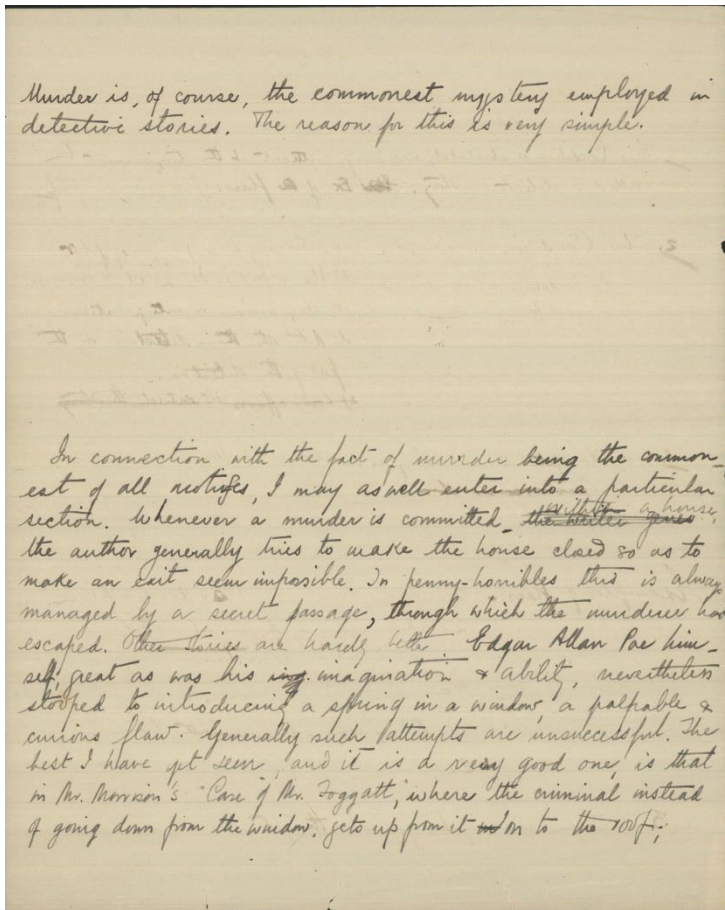 Murder is, of course, the commonest mystery employed in
detective stories. The reason for this is very simple.
In connection with the fact of murder being the common-
est of all motives, I may as well enter into a particular
section. Whenever a murder is committed within a house,
the writer gener
the author generally tries to make the house closed so as to
make an exit seem impossible. In penny-horribles this is always
managed by a secret passage, through which the murderer has
escaped. Other stories are hardly better. Edgar Allan Poe him-
self, great as was his imagination & ability, nevertheless
stooped to introducing a spring in a window, a palpable &
curious flaw. Generally such attempts are unsuccessful. The
best I have yet seen, and it is a very good one, is that
in Mr. Morrison's "Case of Mr. Foggatt," where the criminal instead
of going down from the window, gets up from it on to the roof;